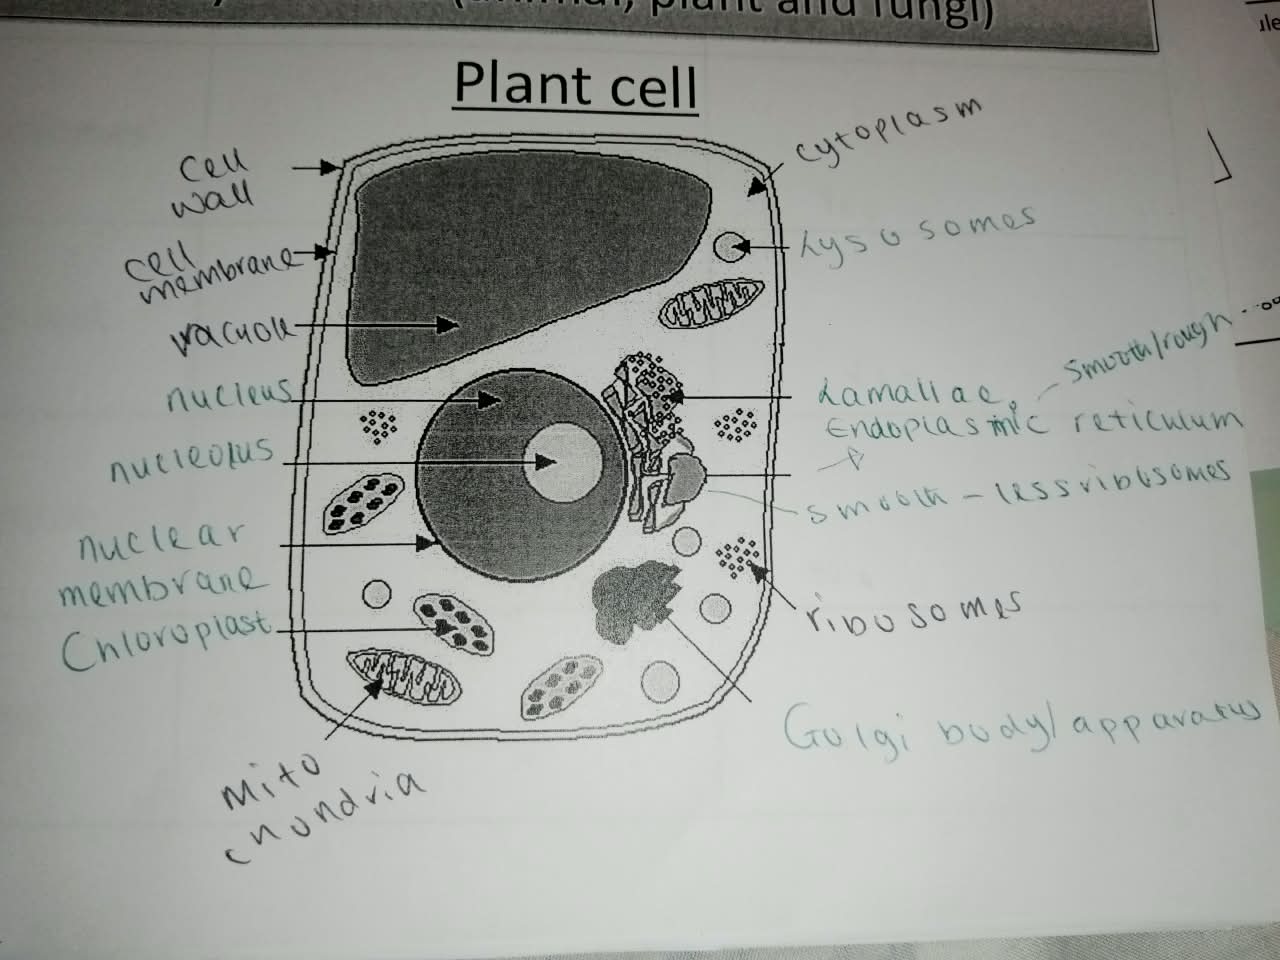 (animal, plant and fungi)
Plant cell
cell
wall
cell
membrane
vacuole
nucleus
nucleolus
nuclear
membrane
Chloroplast
mito
chondria
cytoplasm
Lysosomes
smooth/rough
Lamallae,
Endoplasmic reticulum
smooth - less ribosomes
ribosomes
Golgi body/apparatus